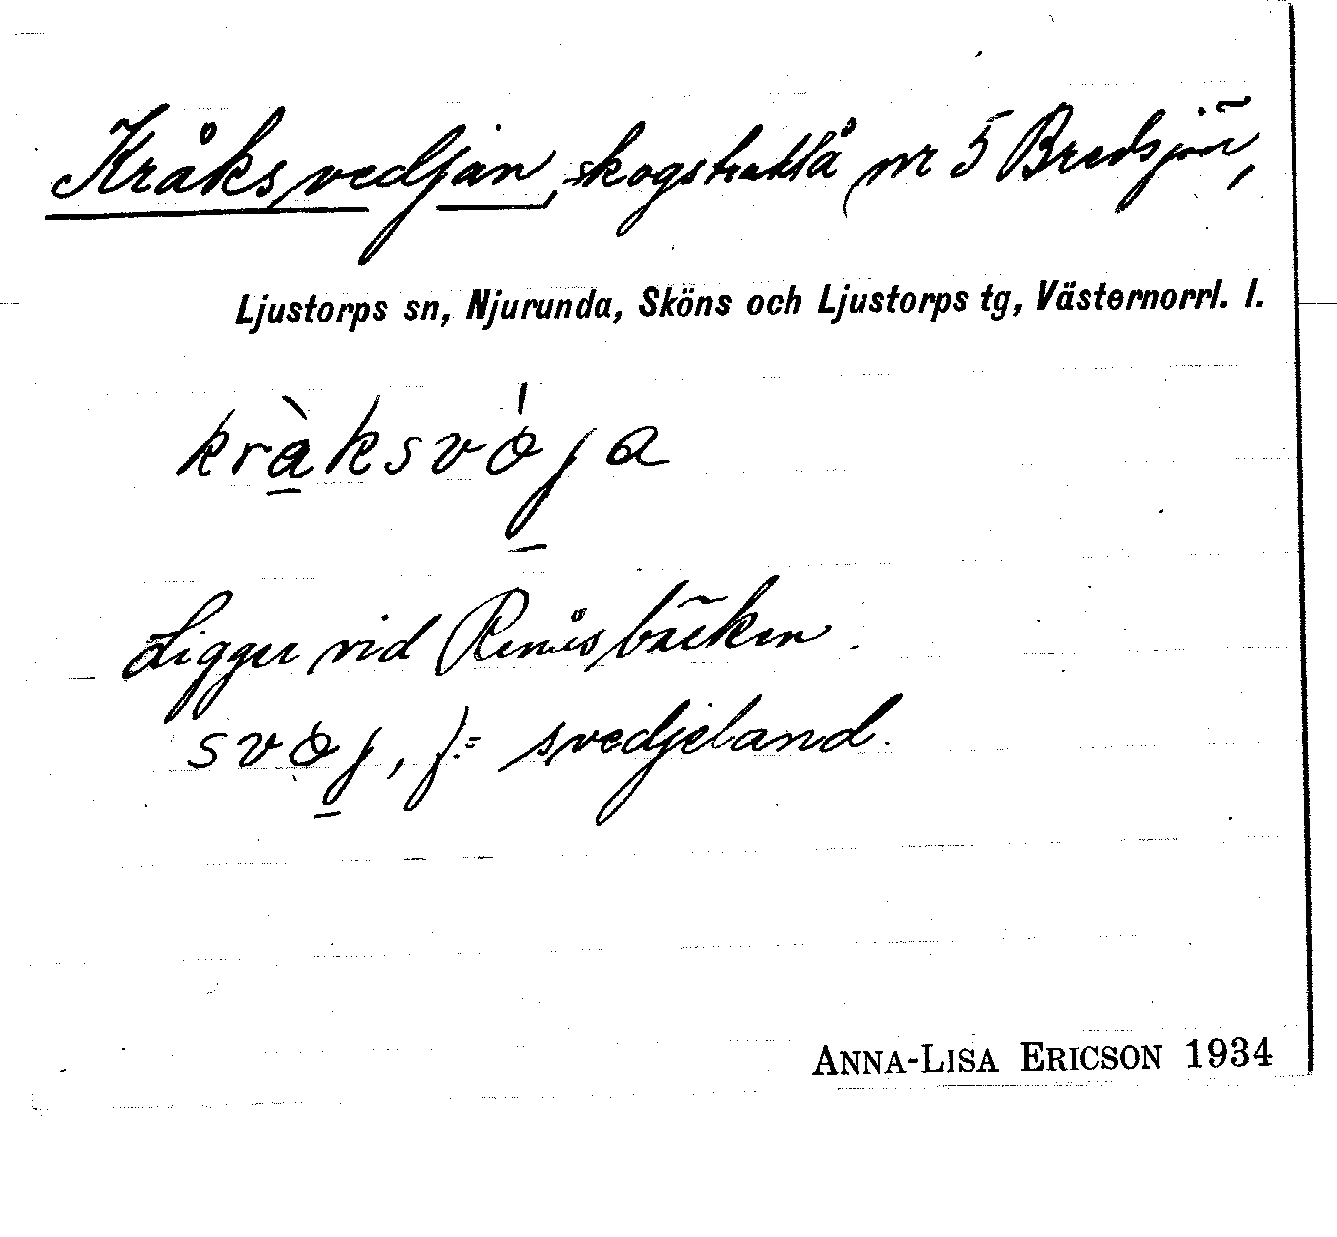 Kråksvedjan, skogstrakt å nr 5 Bredsjön,
Ljustorps sn, Njurunda, Sköns och Ljustorps tg, Västernorrl. l.
kràksvǿja
Ligger vid Renåsbäcken
svøj, f. = svedjeland.
ANNA-LISA ERICSON 1934